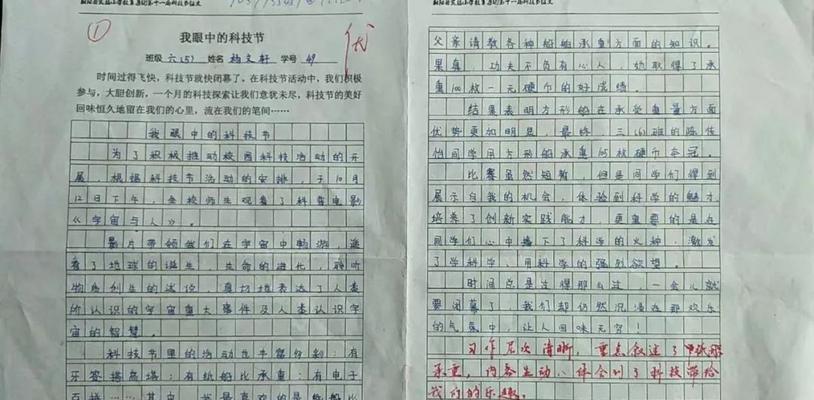 我眼中的科技节
班级 六(5) 姓名 杨文轩 学号 49
时间过得飞快，科技节就快闭幕了，在科技节活动中，我们积极
参与，大胆创新，一个月的科技探索让我们意犹未尽，科技节的美好
回味恒久地留在我们的心里，流在我们的笔间……
我眼中的科技节
为了积极推动校园科技活动的开
展，根据科技节活动的安排，于10月
12日下午，全校师生观看了科普电影
《宇宙与人》。
影片带领我们在宇宙中畅游，遥
看了地球的诞生，生命的进化，聆听
物种创生的述说，真切地表达了人类
所认识的宇宙重大事件及人类认识宇
宙的智慧。
科技节里的活动也丰富多彩：有
牙签搭高塔；有纸船比承重；有电子
百拼……其中，我最喜欢的是纸船比
①
优
父亲请教各种船船承重方面的知识。
果真，功夫不负有心人，她取得了承
重100枚一元硬币的好成绩。
结果表明方形船在承受重量方面
优势更加明显，最终，三(6)班的陈佳
怡同学用方形船承重枚硬币夺冠。
比赛虽然短暂，但是同学们得到
展示自我的机会，体验到科学的魅力，
培养了创新实践能力，更重要的是在
同学们心中播下了科学的火种，激发
了学科学、用科学的强烈欲望。
时间总是过得那么过，一会儿就
要闭幕了，我们却仍然沉浸在那欢乐
的气氛中，让人回味无穷！
习作层次清晰，重点叙述了纸船
承重，内容生动，体会到了科技带给
我们的乐趣。